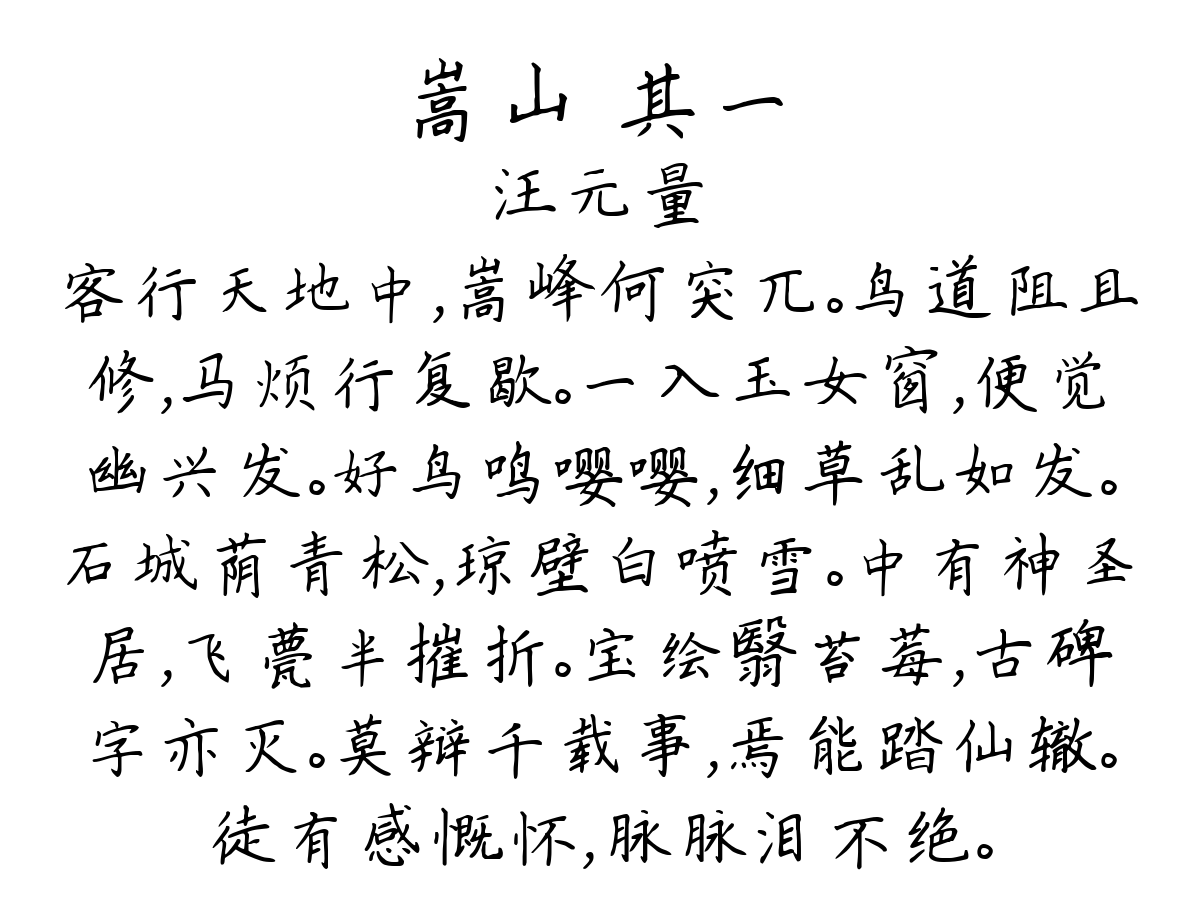 嵩山 其一
汪元量
客行天地中,嵩峰何突兀。鸟道阻且
修,马烦行复歇。一入玉女窗,便觉
幽兴发。好鸟鸣嘤嘤,细草乱如发。
石城荫青松,琼壁白喷雪。中有神圣
居,飞甍半摧折。宝绘翳苔莓,古碑
字亦灭。莫辩千载事,焉能踏仙辙。
徒有感慨怀,脉脉泪不绝。